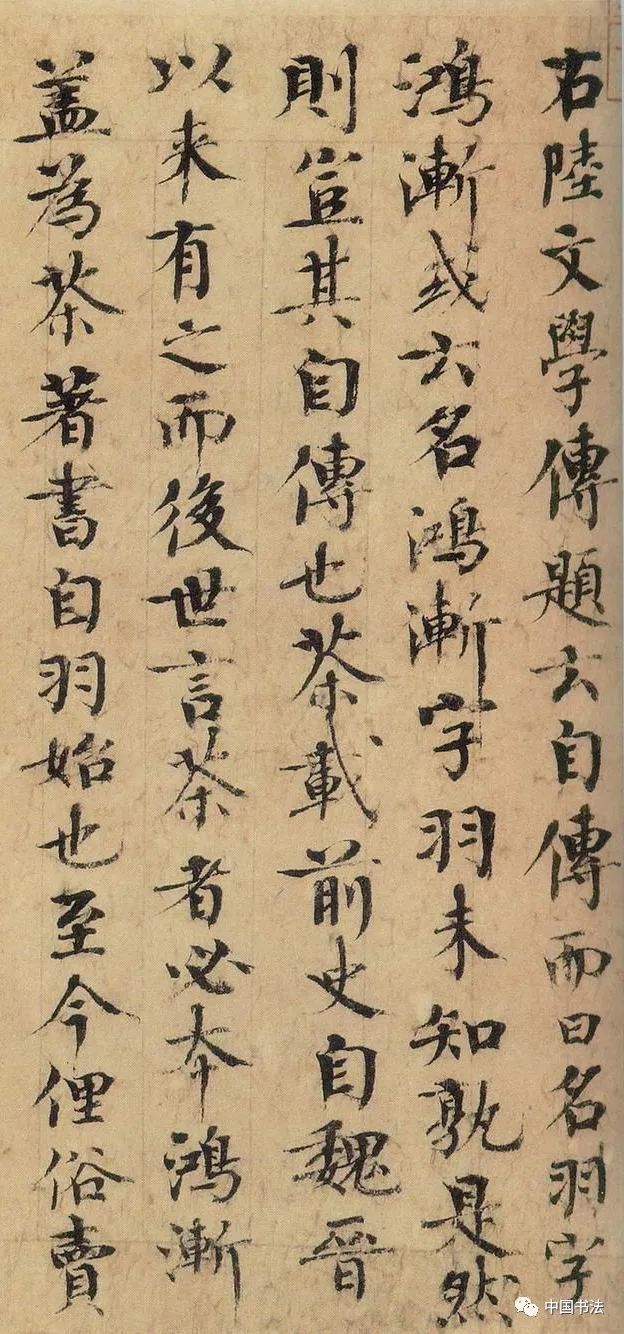 右陸文學傳題云自傳而曰名羽字
鴻漸或云名鴻漸字羽未知孰是然
則豈其自傳也茶載前史自魏晉
以来有之而後世言茶者必本鴻漸
盖為茶著書自羽始也至今俚俗賣
中国书法